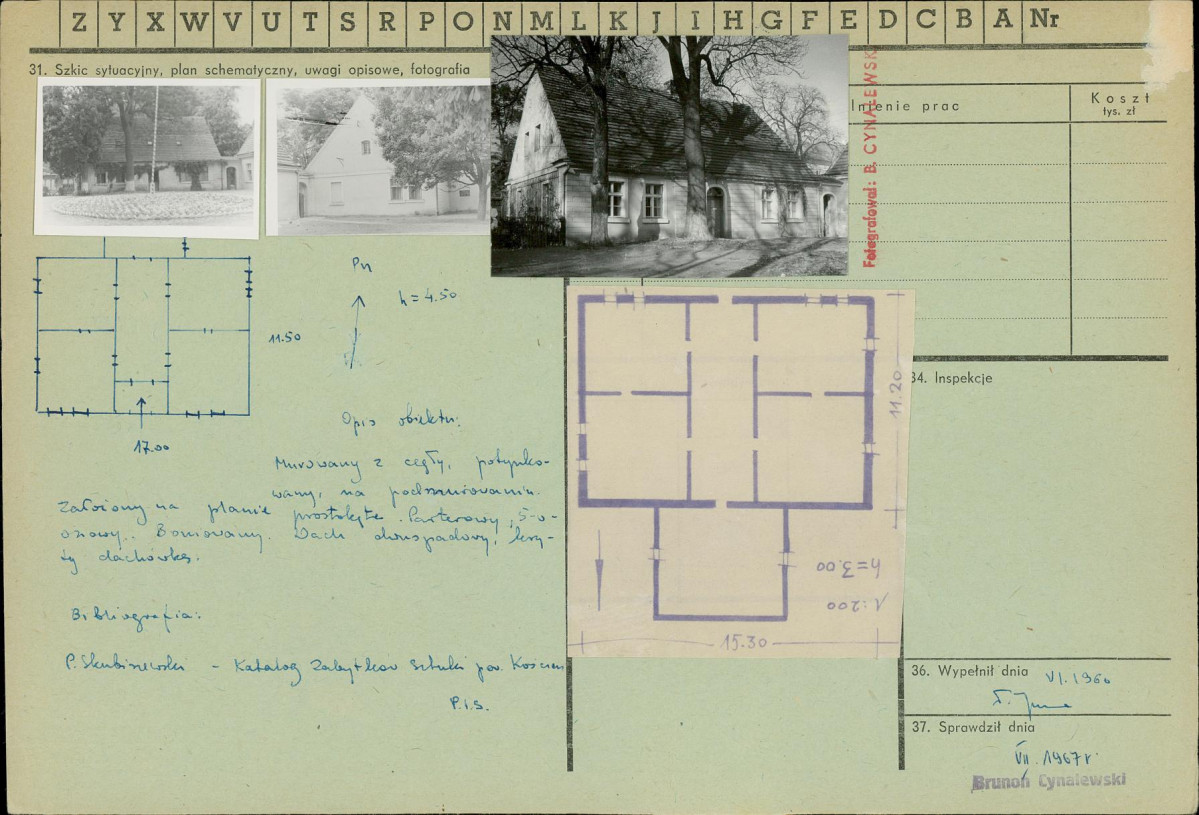 Z Y X W V U T S R P O N M L K J I H G F E D C B A Nr
31. Szkic sytuacyjny, plan schematyczny, uwagi opisowe, fotografia
Fotografował: B. CYNALEWSKI
lnienie prac
Koszt
tys. zł
Pn
h = 4.50
11.50
17.00
Opis obiektu:
Murowany z cegły, potynko-
wany, na podmurowaniu.
Założony na planie prostokąta. Parterowy, 5-o-
osiowy. Boniowany. Dach dwuspadowy, kry-
ty dachówką.
Bibliografia:
P. Skubiszewski - Katalog Zabytków Sztuki pow. Kościan
P.I.S.
11.20
h = 3.00
1:200
15.30
34. Inspekcje
36. Wypełnił dnia VI.1960
37. Sprawdził dnia
VII.1967 r.
Brunon Cynalewski